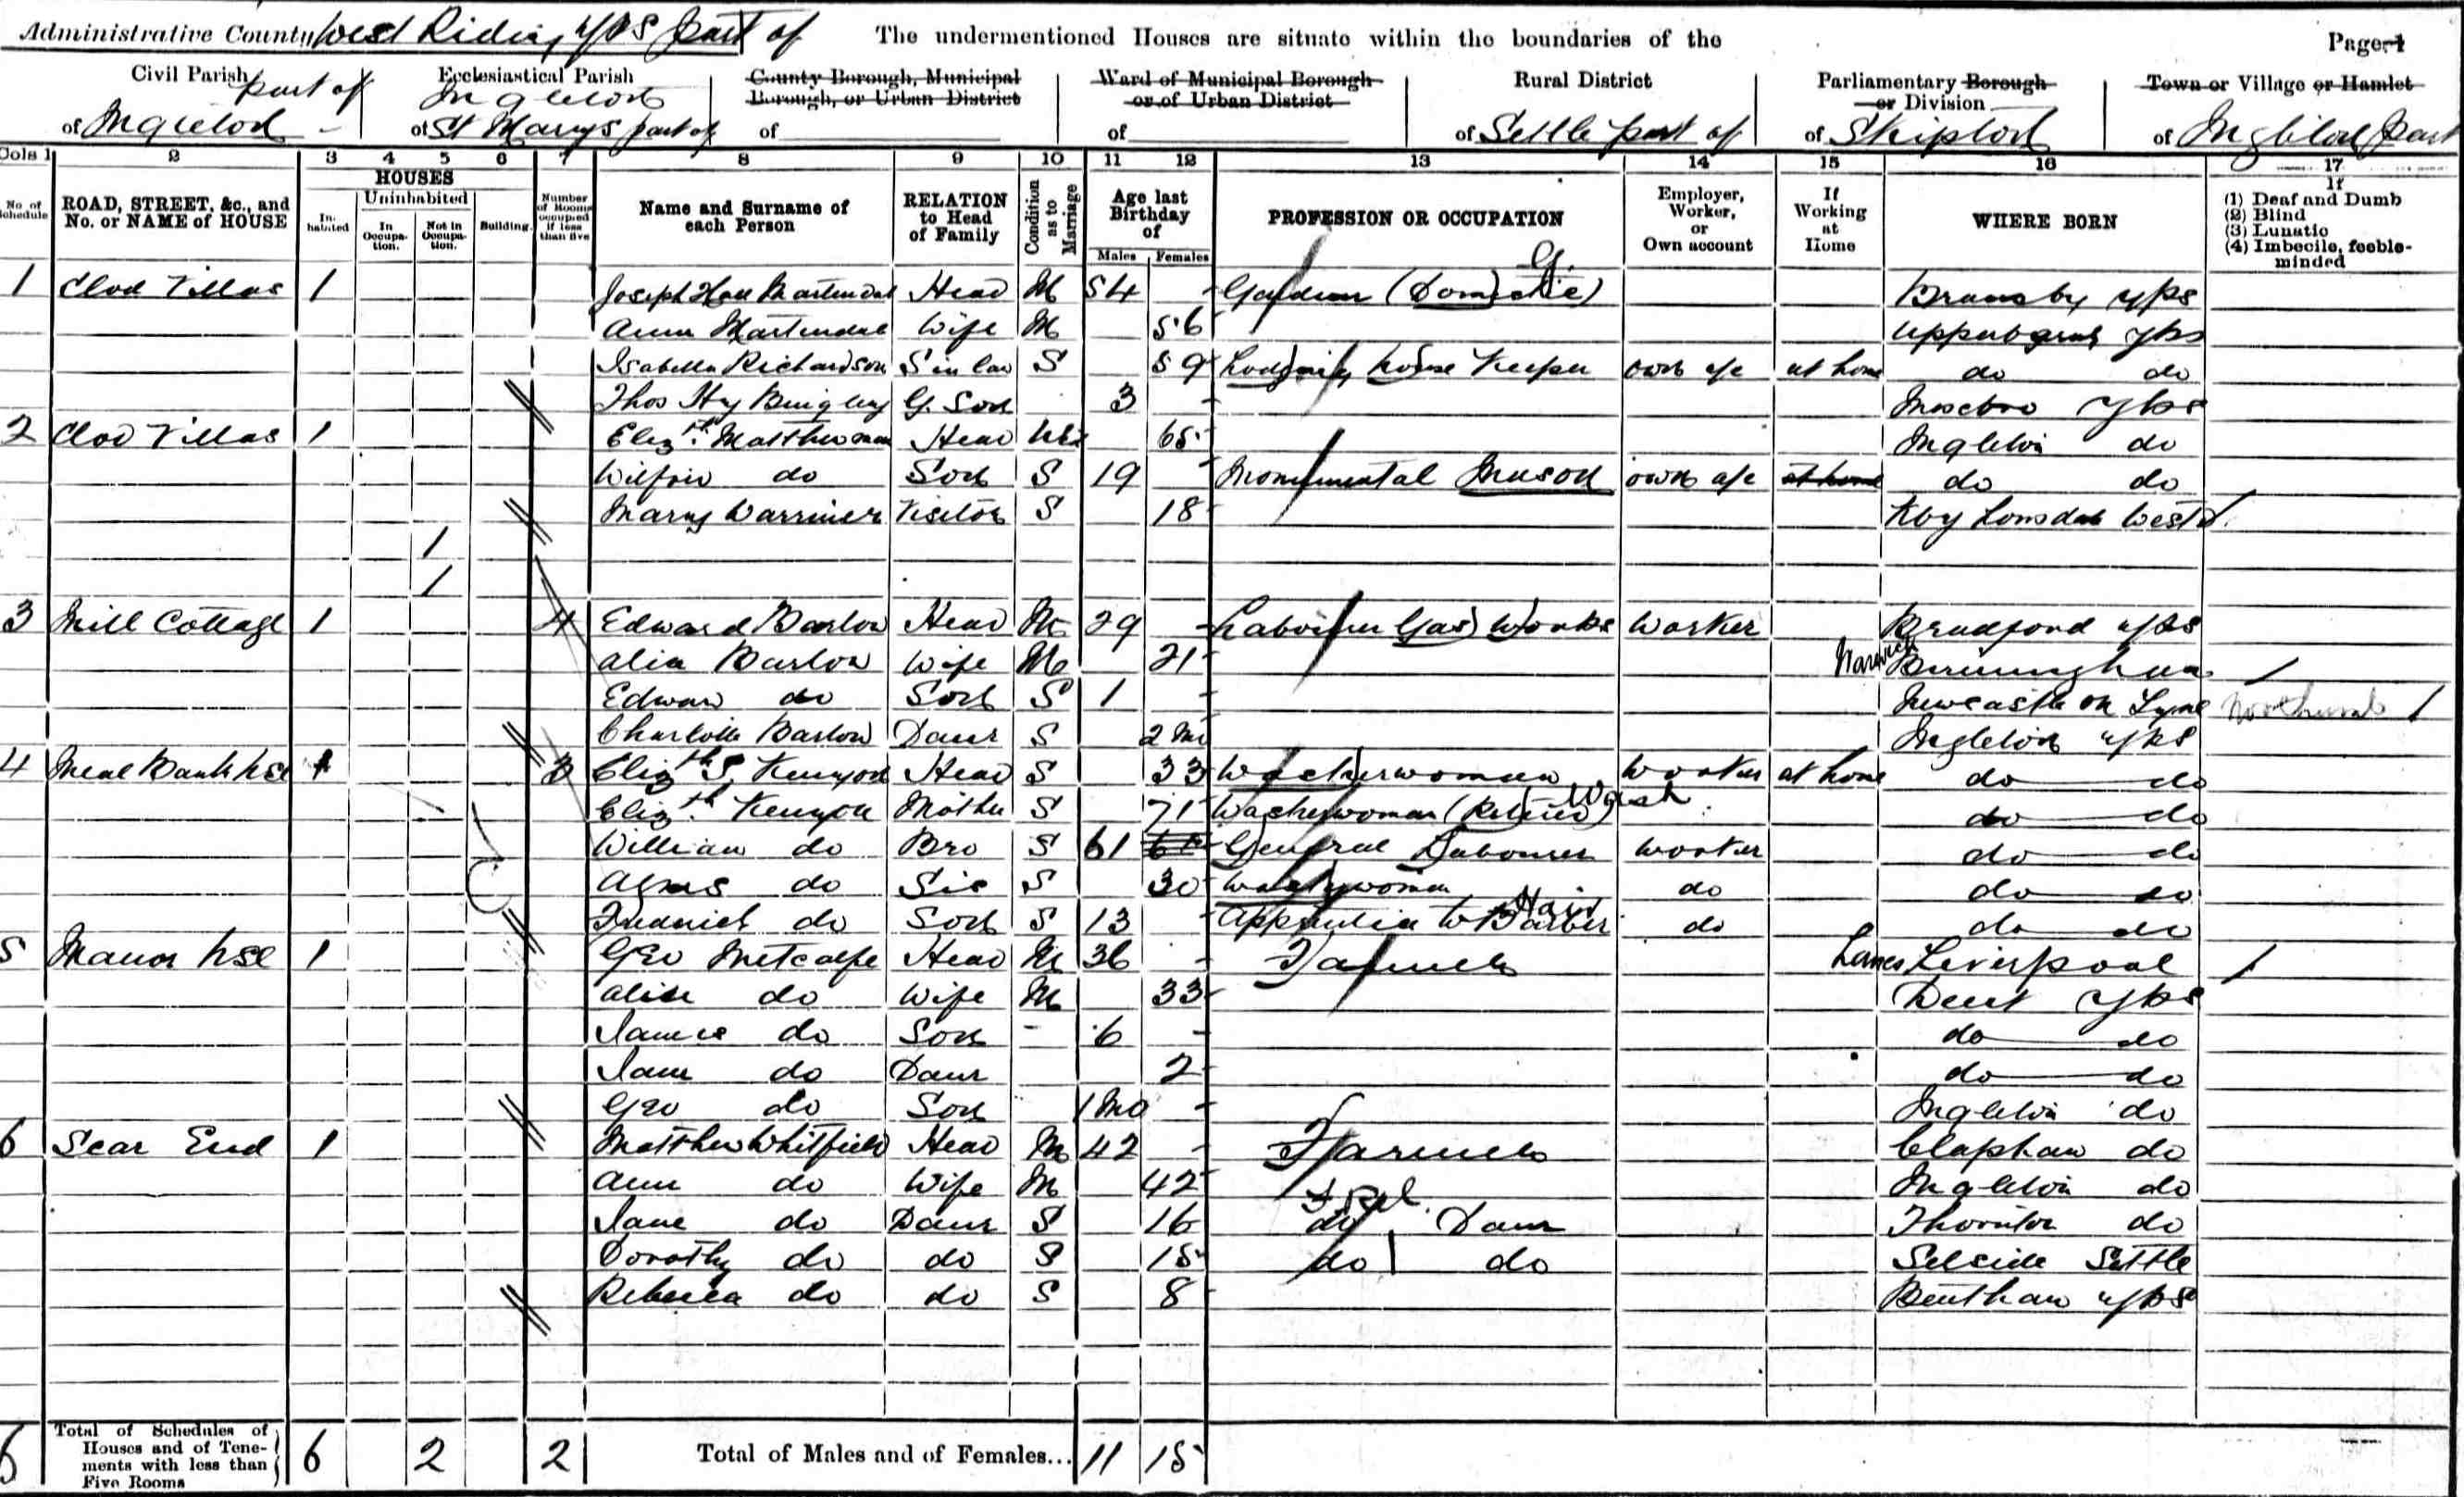 Administrative County West Riding Yks part of The undermentioned Houses are situate within the boundaries of the Page 1
Civil Parish part of Ecclesiastical Parish Ingleton County Borough, Municipal Borough, or Urban District Ward of Municipal Borough or of Urban District Rural District Parliamentary Borough or Division Town or Village or Hamlet
of Ingleton of St Marys part of of of of Settle part of of Skipton of Ingleton part
Cols 1 2 3 4 5 6 7 8 9 10 11 12 13 14 15 16 17
No. of Schedule ROAD, STREET, &c., and No. or NAME of HOUSE HOUSES Inhabited Uninhabited In Occupation. Not in Occupation. Building. Number of Rooms occupied if less than five Name and Surname of each Person RELATION to Head of Family Condition as to Marriage Age last Birthday of Males Females PROFESSION OR OCCUPATION Employer, Worker, or Own account If Working at Home WHERE BORN If (1) Deaf and Dumb (2) Blind (3) Lunatic (4) Imbecile, feeble-minded
G.
1 Clod Villas 1 Joseph Hall Martindale Head M 54 Gardener (Domestic) Yks
Anna Martindale Wife M 56 Yks
Isabella Richardson S in law S 59 Lodging house Keeper own a/c at home do do
Thos Hy G. Son 3 Yks
2 Clod Villas 1 Elizth Matthewman Head Wid 65 Ingleton do
Wilfrid do Son S 19 Monumental Mason own a/c at home do do
Mary Warriner Visitor S 18 Kby Lonsdale Westd
1
1
3 Mill Cottage 1 4 Edward Barlow Head M 29 Labourer Gas Works Worker Bradford Yks
Barlow Wife M 21 Warwick Birmingham
Edward do Son S 1 Newcastle on Tyne Northumb 1
Charlotte Barlow Daur S 2 Mo Ingleton Yks
4 Meal Bank hse 1 3 Elizth S. Kenyon Head S 33 Washerwoman Worker at home do do
Elizth Kenyon Mother S 71 Washerwoman (Retired) Wash do do
William do Bro S 61 61 General Labourer Worker do do
Agnes do Sis S 30 Washerwoman do do do
Frederick do Son S 13 Apprentice to Hair Barber do do do
5 Manor hse 1 Geo Metcalfe Head M 36 Farmer Lancs Liverpool
Alice do Wife M 33 Dent Yks
James do Son - 6 do do
Jane do Daur 2 do do
Geo do Son 1 Mo Ingleton do
6 Scar End 1 Matthew Whitfield Head M 42 Farmer Clapham do
Ann do Wife M 42 Ingleton do
Jane do Daur S 16 do Daur Thornton do
Dorothy do do S 15 do do Selside Settle
Rebecca do do S 8 Bentham Yks
6 Total of Schedules of Houses and of Tenements with less than Five Rooms 6 2 2 Total of Males and of Females... 11 15